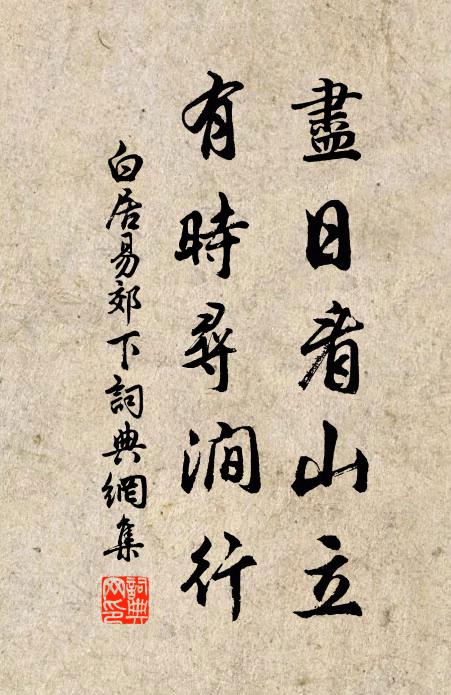 盡日看山立
有時尋澗行
白居易郊下詞典網集
詞典網印